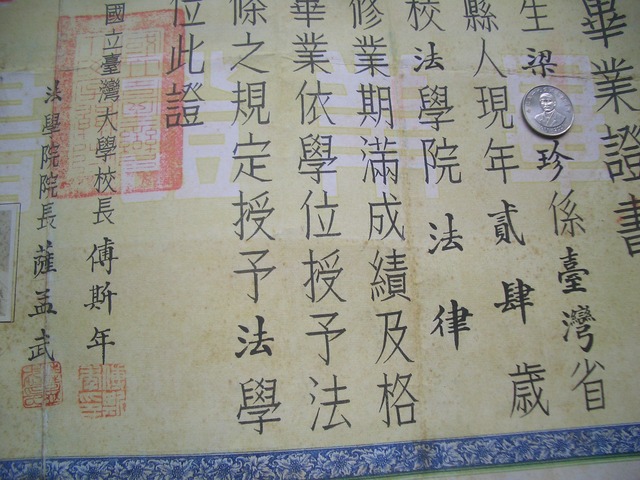 畢業證書
生梁珍係臺灣省
縣人現年貳肆歲
校法學院法律
修業期滿成績及格
畢業依學位授予法
條之規定授予法學
位此證
國立臺灣大學校長傅斯年
法學院院長薩孟武